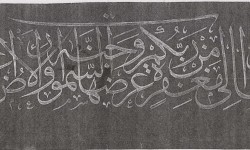 إلى مغفرة من ربكم وجنة عرضها السموات والأرض